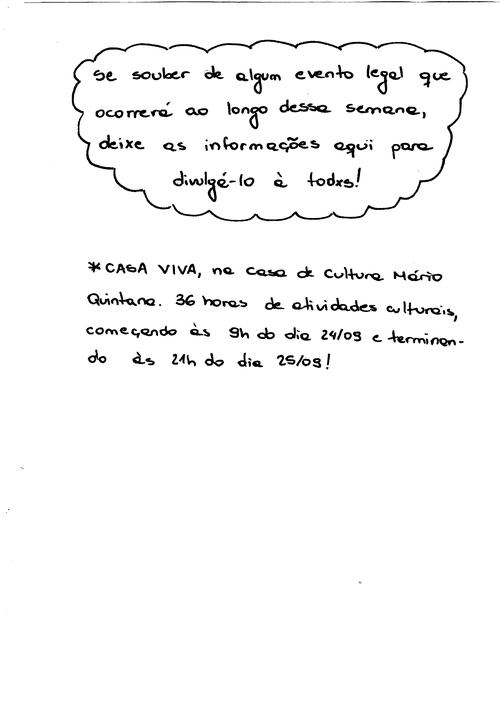 Se souber de algum evento legal que
ocorrerá ao longo dessa semana,
deixe as informações aqui para
divulgá-lo à todxs!
* CASA VIVA, na Casa de Cultura Mário
Quintana. 36 horas de atividades culturais,
começando às 9h do dia 24/09 e terminan-
do às 21h do dia 25/09!